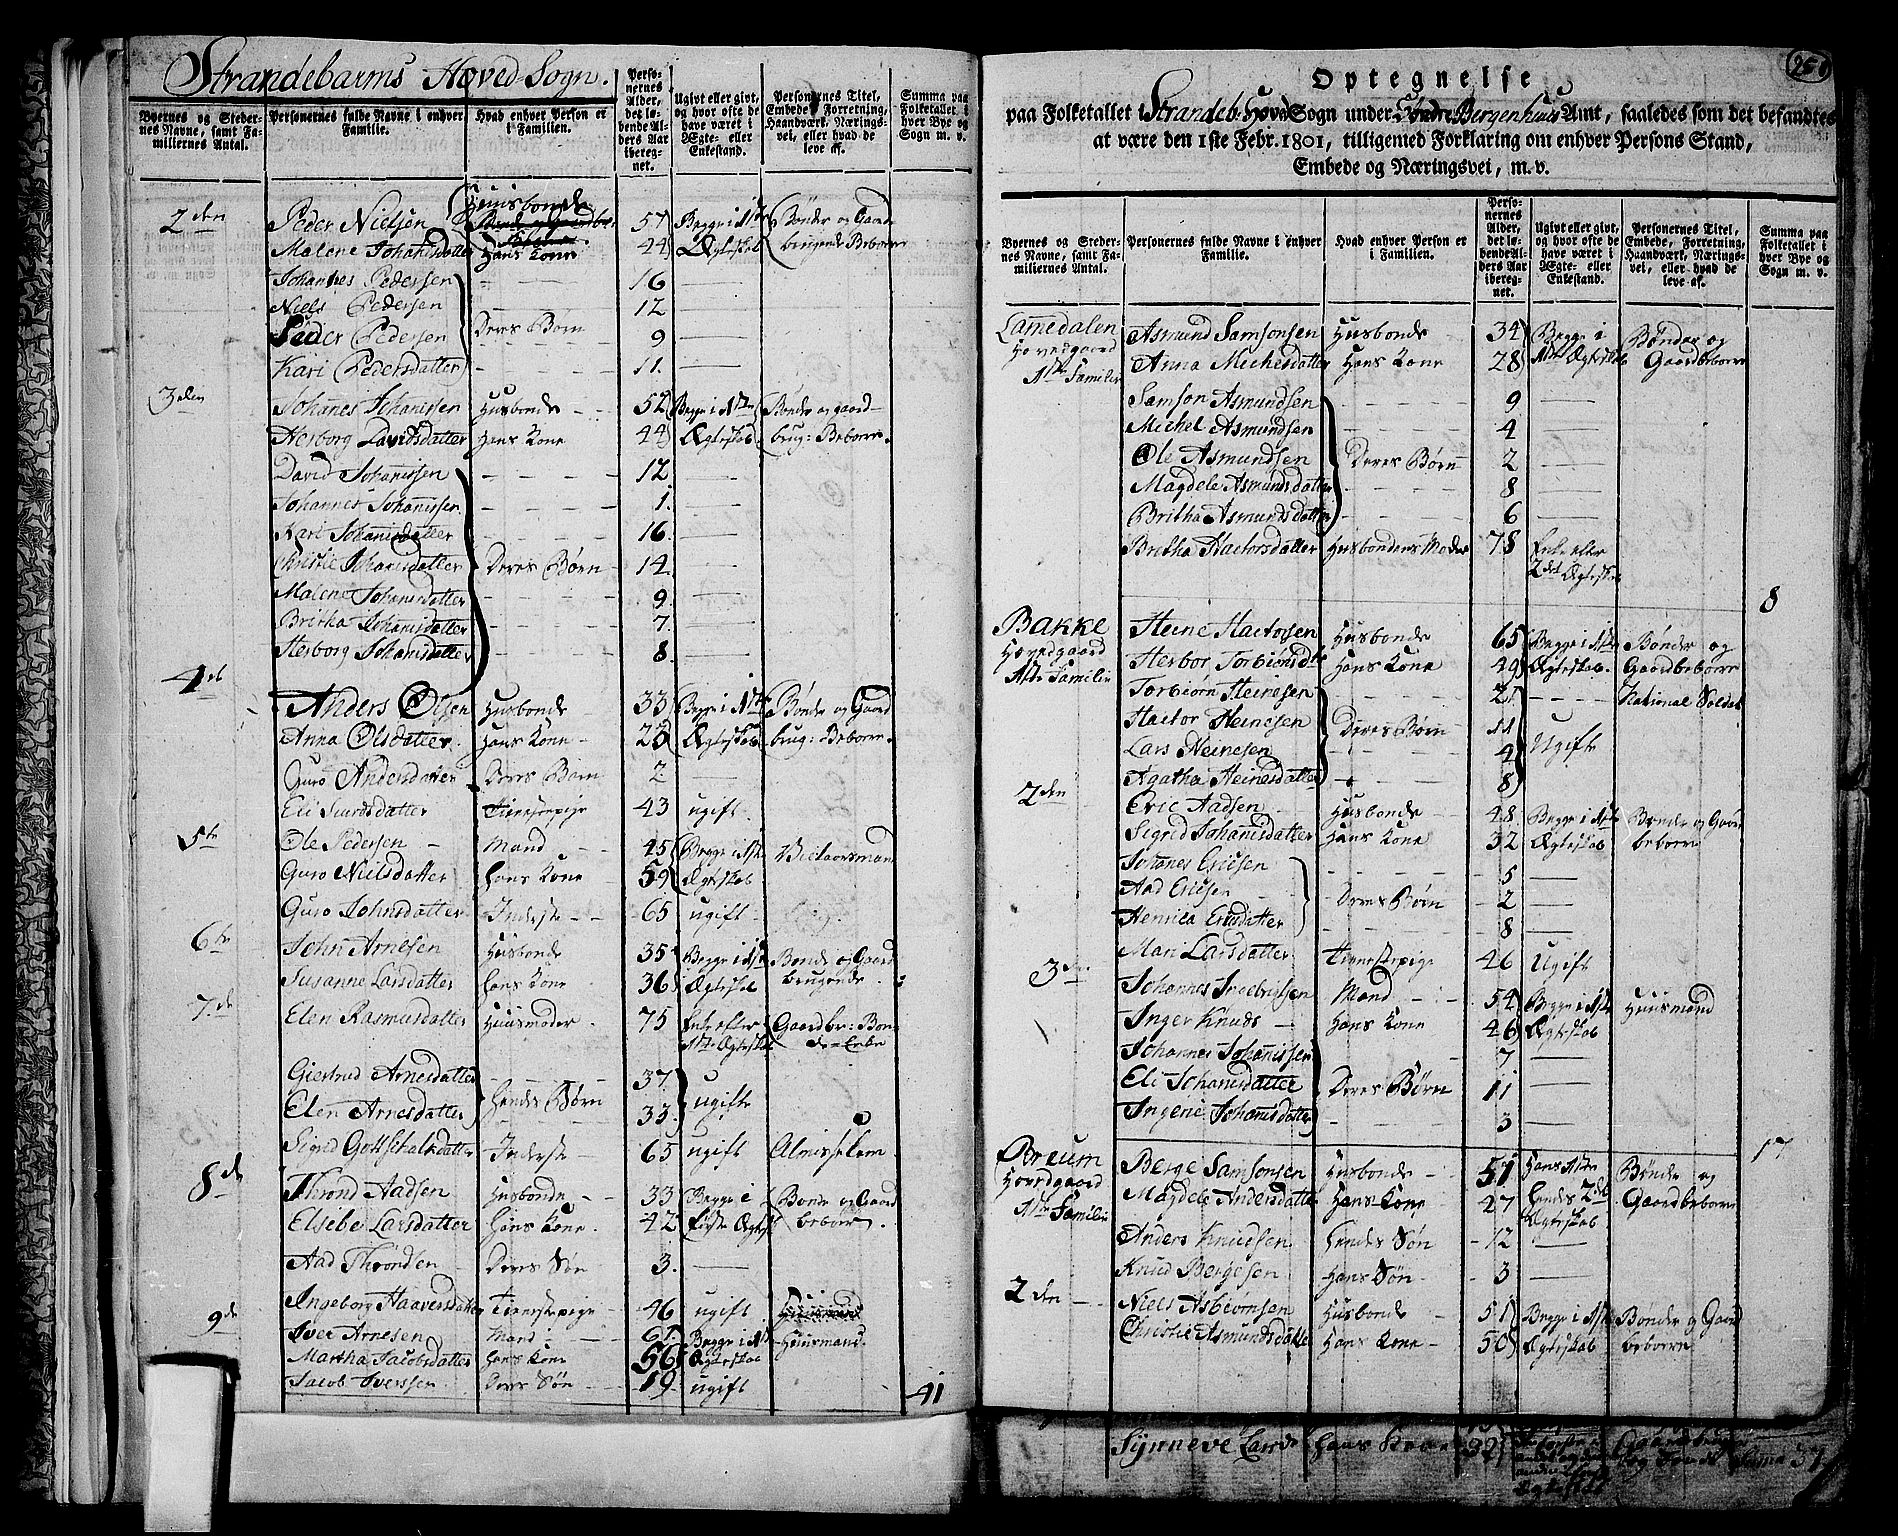 Strandebarms Hoved-Sogn.
Byernes og Stedernes Navne, samt Familiernes Antal.
Personernes fulde Navne i enhver Familie.
Hvad enhver Person er i Familien.
Personernes Alder, det løbende Alders Aar iberegnet.
Ugivt eller givt, og hvor ofte de have været i Ægte- eller Enkestand.
Personernes Titel, Embede, Forretning, Haandværk, Næringsvei, eller hvad de leve af.
Summa paa Folketallet i hver Bye og Sogn m. v.
2den Peder Nielsen Huusbonde 57 Begge i 1ste Bönder og Gaard
Malene Johansdatter Hans Kone 44 Ægteskab brugende Beboere
Johannes Pedersen 16
Niels Pedersen 12
Peder Pedersen Deres Börn 9
Kari Pedersdatter 11.
3den Johannes Johanissen Husbonde 52 Begge i 1sten Bonde og gaard-
Herborg Davidsdatter Hans Kone 44 Ægteskab. brug: Beboere.
David Johanissen 12
Johannes Johanissen 1.
Kari Johanisdatter 16.
Christie Johanisdatter Deres Börn 14.
Malene Johanisdatter 9.
Britha Johanisdatter 7.
Herborg Johanisdatter 8.
4de Anders Olsen Husbonde 33 Begge i 1ste Bönder og Gaard
Anna Olsdatter. Hans Kone 28 Ægteskab brug: Beboere.
Guro Andersdatter Deres Barn 2.
Eli Siurdsdatter Tienestepige 43 ugift.
5te Ole Pedersen Mand 45 Begge i 1ste
Guro Nielsdatter Hans Kone 59 Ægteskab
Guro Johnsdatter Inderste 65 ugift
6te John Arnesen Husbonde 35 Begge i 1ste Bonde og Gaard
Susanne Larsdatter Hans Kone 36 Ægteskab brugende.
7de Elen Rasmusdatter Huusmoder. 75 Enke efter Gaardbr: Bon-
1ste Ægteskab de-Enke
Giertrud Arnesdatter 37.
Elen Arnesdatter Hendes Börn 33. ugifte
Sigrid Gottschalksdatter Inderste 65 ugift Almisselem
8de Thrond Aadsen Husbonde 33 Begge i Bonde og Gaard
Elsebe Larsdatter Hans Kone. 42 Första Ægtesk beboere.
Aad Thrönden Deres Sön 3.
Ingeborg Haaversdatter Tienestepige 46 ugift
9de Iver Arnesen Mand 61 Begge i 1ste Huusmand
Martha Jacobsdatter Hans Kone 56 Ægteskab
Jacob Iverssen Deres Sön 19 ugift
41
Optegnelse
paa Folketallet i Strandeb: Hoved Sogn under Søndre Bergenhuus Amt, saaledes som det befandtes
at være den 1ste Febr. 1801, tilligemed Forklaring om enhver Persons Stand,
Embede og Næringsvei, m. v.
Byernes og Stedernes Navne, samt Familiernes Antal.
Personernes fulde Navne i enhver Familie.
Hvad enhver Person er i Familien.
Personernes Alder, det løbende Alders Aar iberegnet.
Ugivt eller givt, og hvor ofte de have været i Ægte- eller Enkestand.
Personernes Titel, Embede, Forretning, Haandværk, Næringsvei, eller hvad de leve af.
Summa paa Folketallet i hver Bye og Sogn m. v.
Lamedalen Asmund Samsonsen Husbonde 34 Begge i Bönder og
Hovedgaard Anna Michelsdatter Hans Kone 28 1ste Ægteskab Gaardbeboere
1ste Familie
Samson Asmundsen 9
Michel Asmundsen 4
Ole Asmundsen Deres Börn 2
Magdele Asmundsdatter 8
Britha Asmundsdatter 6
Britha Hactorsdatter Husbondens Moder 78 Enke efter
2det Ægtesk
8
Bakke Heine Hactorsen Husbonde 65 Begge i 1ste Bönder og
Hovedgaard Herbor Torbiörnsdtr Hans Kone 49 Ægteskab. Gaardbeboere
1ste Familie Torbiörn Heinesen 21 National Soldat
Hactor Heinesen Deres Börn 11
Lars Heinesen 4 Ugifte
Agatha Heinesdatter 8
2den Eric Aadsen Husbonde 48 Begge i 1ste Bönder og Gaard
Sigrid Johanisdatter Hans Kone 32 Ægteskab beboere
Johanes Ericsen 5
Aad Ericsen Deres Börn 2
Henrica Ericsdatter 8
Mari Larsdatter Tienestepige 46 Ugift
3die Johannes Fredrigsen Mand 54 Begge i 1ste Huusmand
Inger Knuds Hans Kone 46 Ægteskab
Johannes Johanissen 7
Eli Johanisdatter Deres Börn 11
Ingerie Johanisdatter 3
17
Breum Berge Samsonsen Husbonde 51 Hans 1sten Bönder og
Hovedgaard Magdele Andersdatter Hans Kone 47 Hendes 2det Gaardbeboere
1ste Familie Ægteskab
Anders Knudsen Hendes Sön 12
Knud Bergesen Hans Sön 3
2den Niels Asbiörnsen Husbonde 51 Begge i 1ste Bönder og Gaard
Christie Asmundsdatter Hans Kone 50 Ægteskab beboere
Synneve Larsd Hans Kone 39